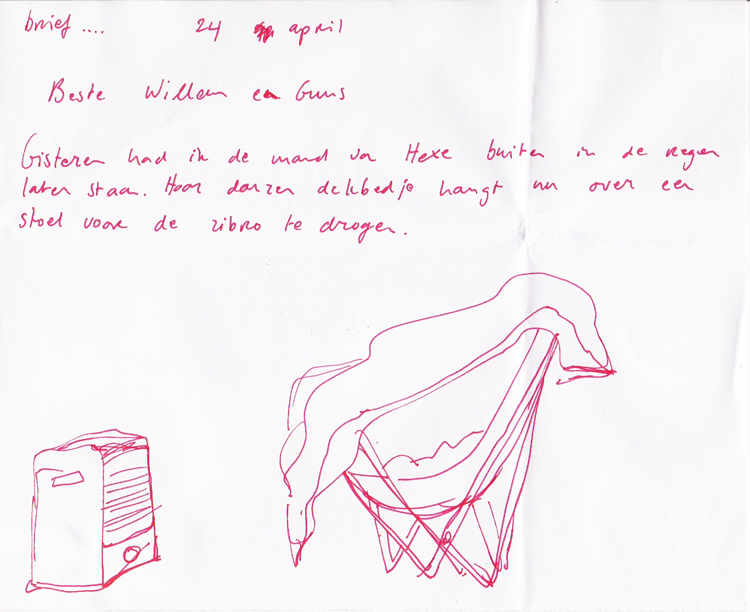 brief .... 24 april
Beste Willem en Guus
Gisteren had ik de mand van Hexe buiten in de regen
laten staan. Haar donzen dekbedje hangt nu over een
stoel voor de zibro te drogen.